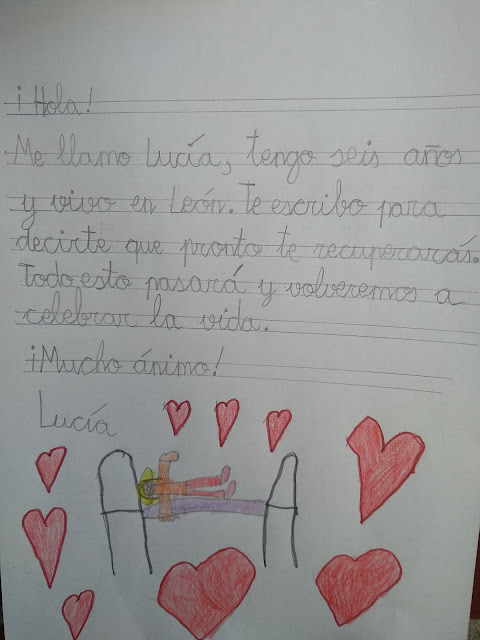 ¡Hola!
Me llamo Lucía, tengo seis años
y vivo en León. Te escribo para
decirte que pronto te recuperarás.
Todo esto pasará y volveremos a
celebrar la vida.
¡Mucho ánimo!
Lucía